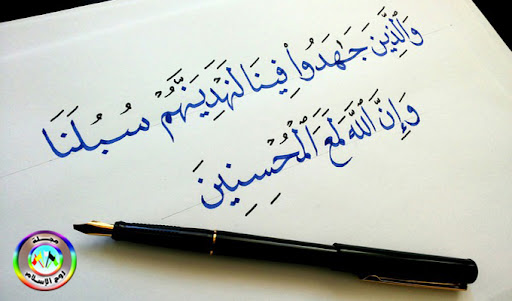 وَالَّذِينَ جَاهَدُوا فِينَا لَنَهْدِيَنَّهُمْ سُبُلَنَا
وَإِنَّ اللَّهَ لَمَعَ الْمُحْسِنِينَ
مجلة
روح الإسلام